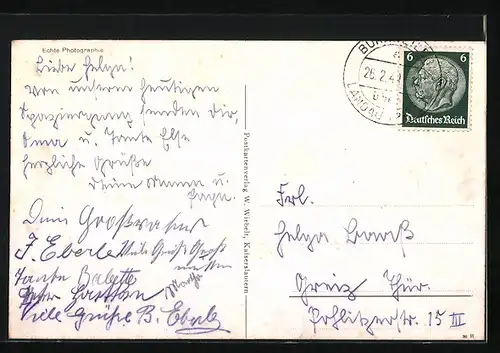 Echte Photographie
Liebe Helga!
Von unserem heutigen
Spaziergang senden Dir,
Oma u. Tante Else
herzliche Grüße
Deine Mama u.
Papa.
Dein Großvater
F. Eberle Viele Grüße
Tante Babette
Viele Grüße B. Eberle
Postkartenverlag W. Wiebelt, Kaiserslautern
26.2.4
LANDAU
6 6
Deutsches Reich
Frl.
Helga
Greiz Thür.
Pohlitzerstr. 15 III